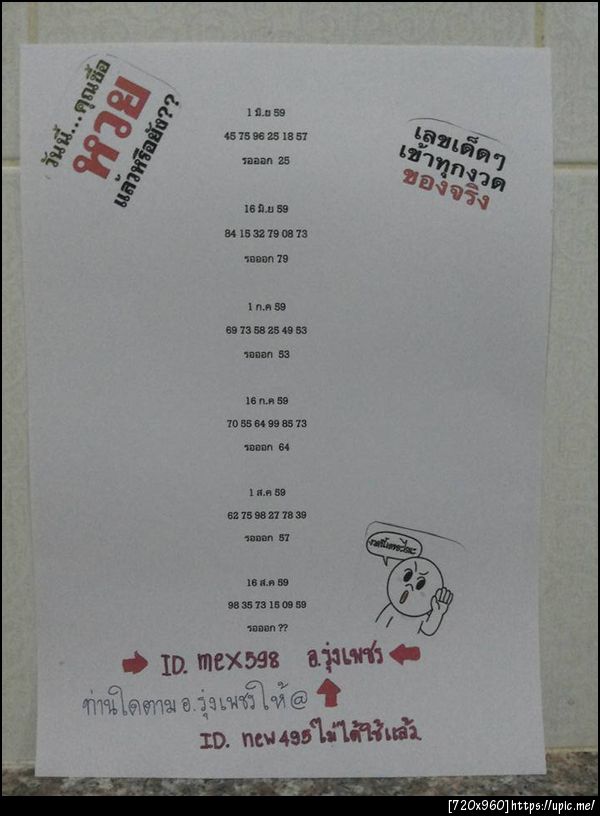 วันนี้...คุณซื้อ
หวย
แล้วหรือยัง??
เลขเด็ดๆ
เข้าทุกงวด
ของจริง
1 มิ.ย 59
45 75 96 25 18 57
รอออก 25
16 มิ.ย 59
84 15 32 79 08 73
รอออก 79
1 ก.ค 59
69 73 58 25 49 53
รอออก 53
16 ก.ค 59
70 55 64 99 85 73
รอออก 64
1 ส.ค 59
62 75 98 27 78 39
รอออก 57
16 ส.ค 59
98 35 73 15 09 59
รอออก ??
ID. mex598 อ.รุ่งเพชร
ท่านใดตาม อ.รุ่งเพชรให้@
ID. new495 ไม่ได้ใช้แล้ว
[720x960] https://upic.me/